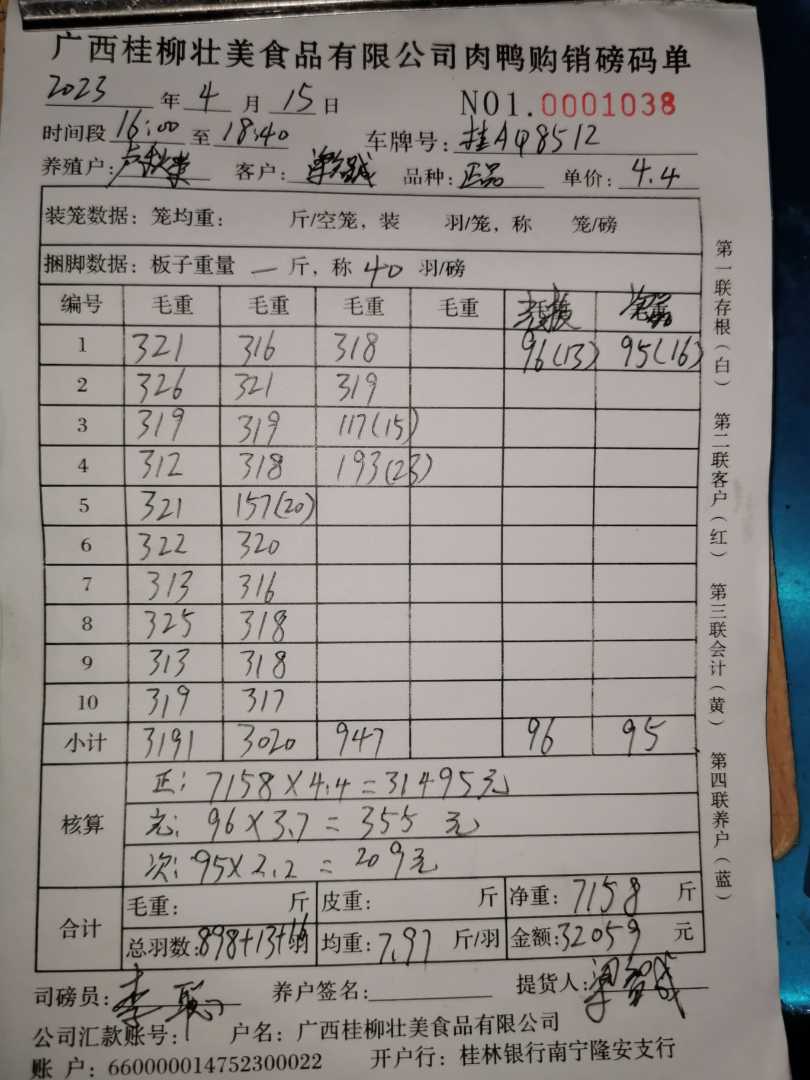 广西桂柳壮美食品有限公司肉鸭购销磅码单
2023 年 4 月 15 日 NO1.0001038
时间段 16:00 至 18:40 车牌号: 桂AQ8512
养殖户: 客户: 品种: 正品 单价: 4.4
装笼数据: 笼均重: 斤/空笼, 装 羽/笼, 称 笼/磅
捆脚数据: 板子重量 一 斤, 称 40 羽/磅
编号 毛重 毛重 毛重 毛重
1 321 316 318 96(13) 95(16)
2 326 321 319
3 319 319 117(15)
4 312 318 193(23)
5 321 157(20)
6 322 320
7 313 316
8 325 318
9 313 318
10 319 317
小计 3191 3020 947 96 95
核算
正: 7158×4.4=31495元
96×3.7=355元
次: 95×2.2=209元
合计
毛重: 斤 皮重: 斤 净重: 7158 斤
总羽数: 898+13+16 均重: 7.97 斤/羽 金额: 32059 元
司磅员: 李聪 养户签名: 提货人:
公司汇款账号: 户名: 广西桂柳壮美食品有限公司
账 户: 660000014752300022 开户行: 桂林银行南宁隆安支行
第一联存根(白) 第二联客户(红) 第三联会计(黄) 第四联养户(蓝)